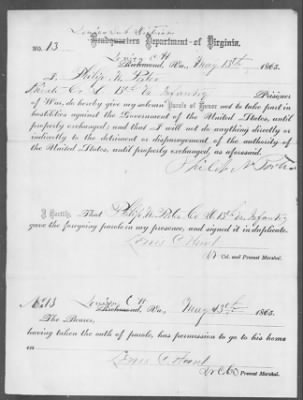 Louisa Sub District
Headquarters Department of Virginia.
NO. 13
Louisa C H
Richmond, Va., May 13th 1865.
I, Philip N. Porter
Private Co. 13th Infantry Prisoner
of War, do hereby give my solemn Parole of Honor not to take part in
hostilities against the Government of the United States, until
properly exchanged; and that I will not do anything directly or
indirectly to the detriment or disparagement of the authority of
the United States, until properly exchanged, as aforesaid.
Philip N. Porter
I Certify, That Philip N. Porter Co. 13th Infantry
gave the foregoing parole in my presence, and signed it in duplicate.
Lt. Col. and Provost Marshal.
No. 13 Louisa C H
Richmond, Va., May 13th 1865.
The Bearer,
having taken the oath of parole, has permission to go to his home
in
Provost Marshal.